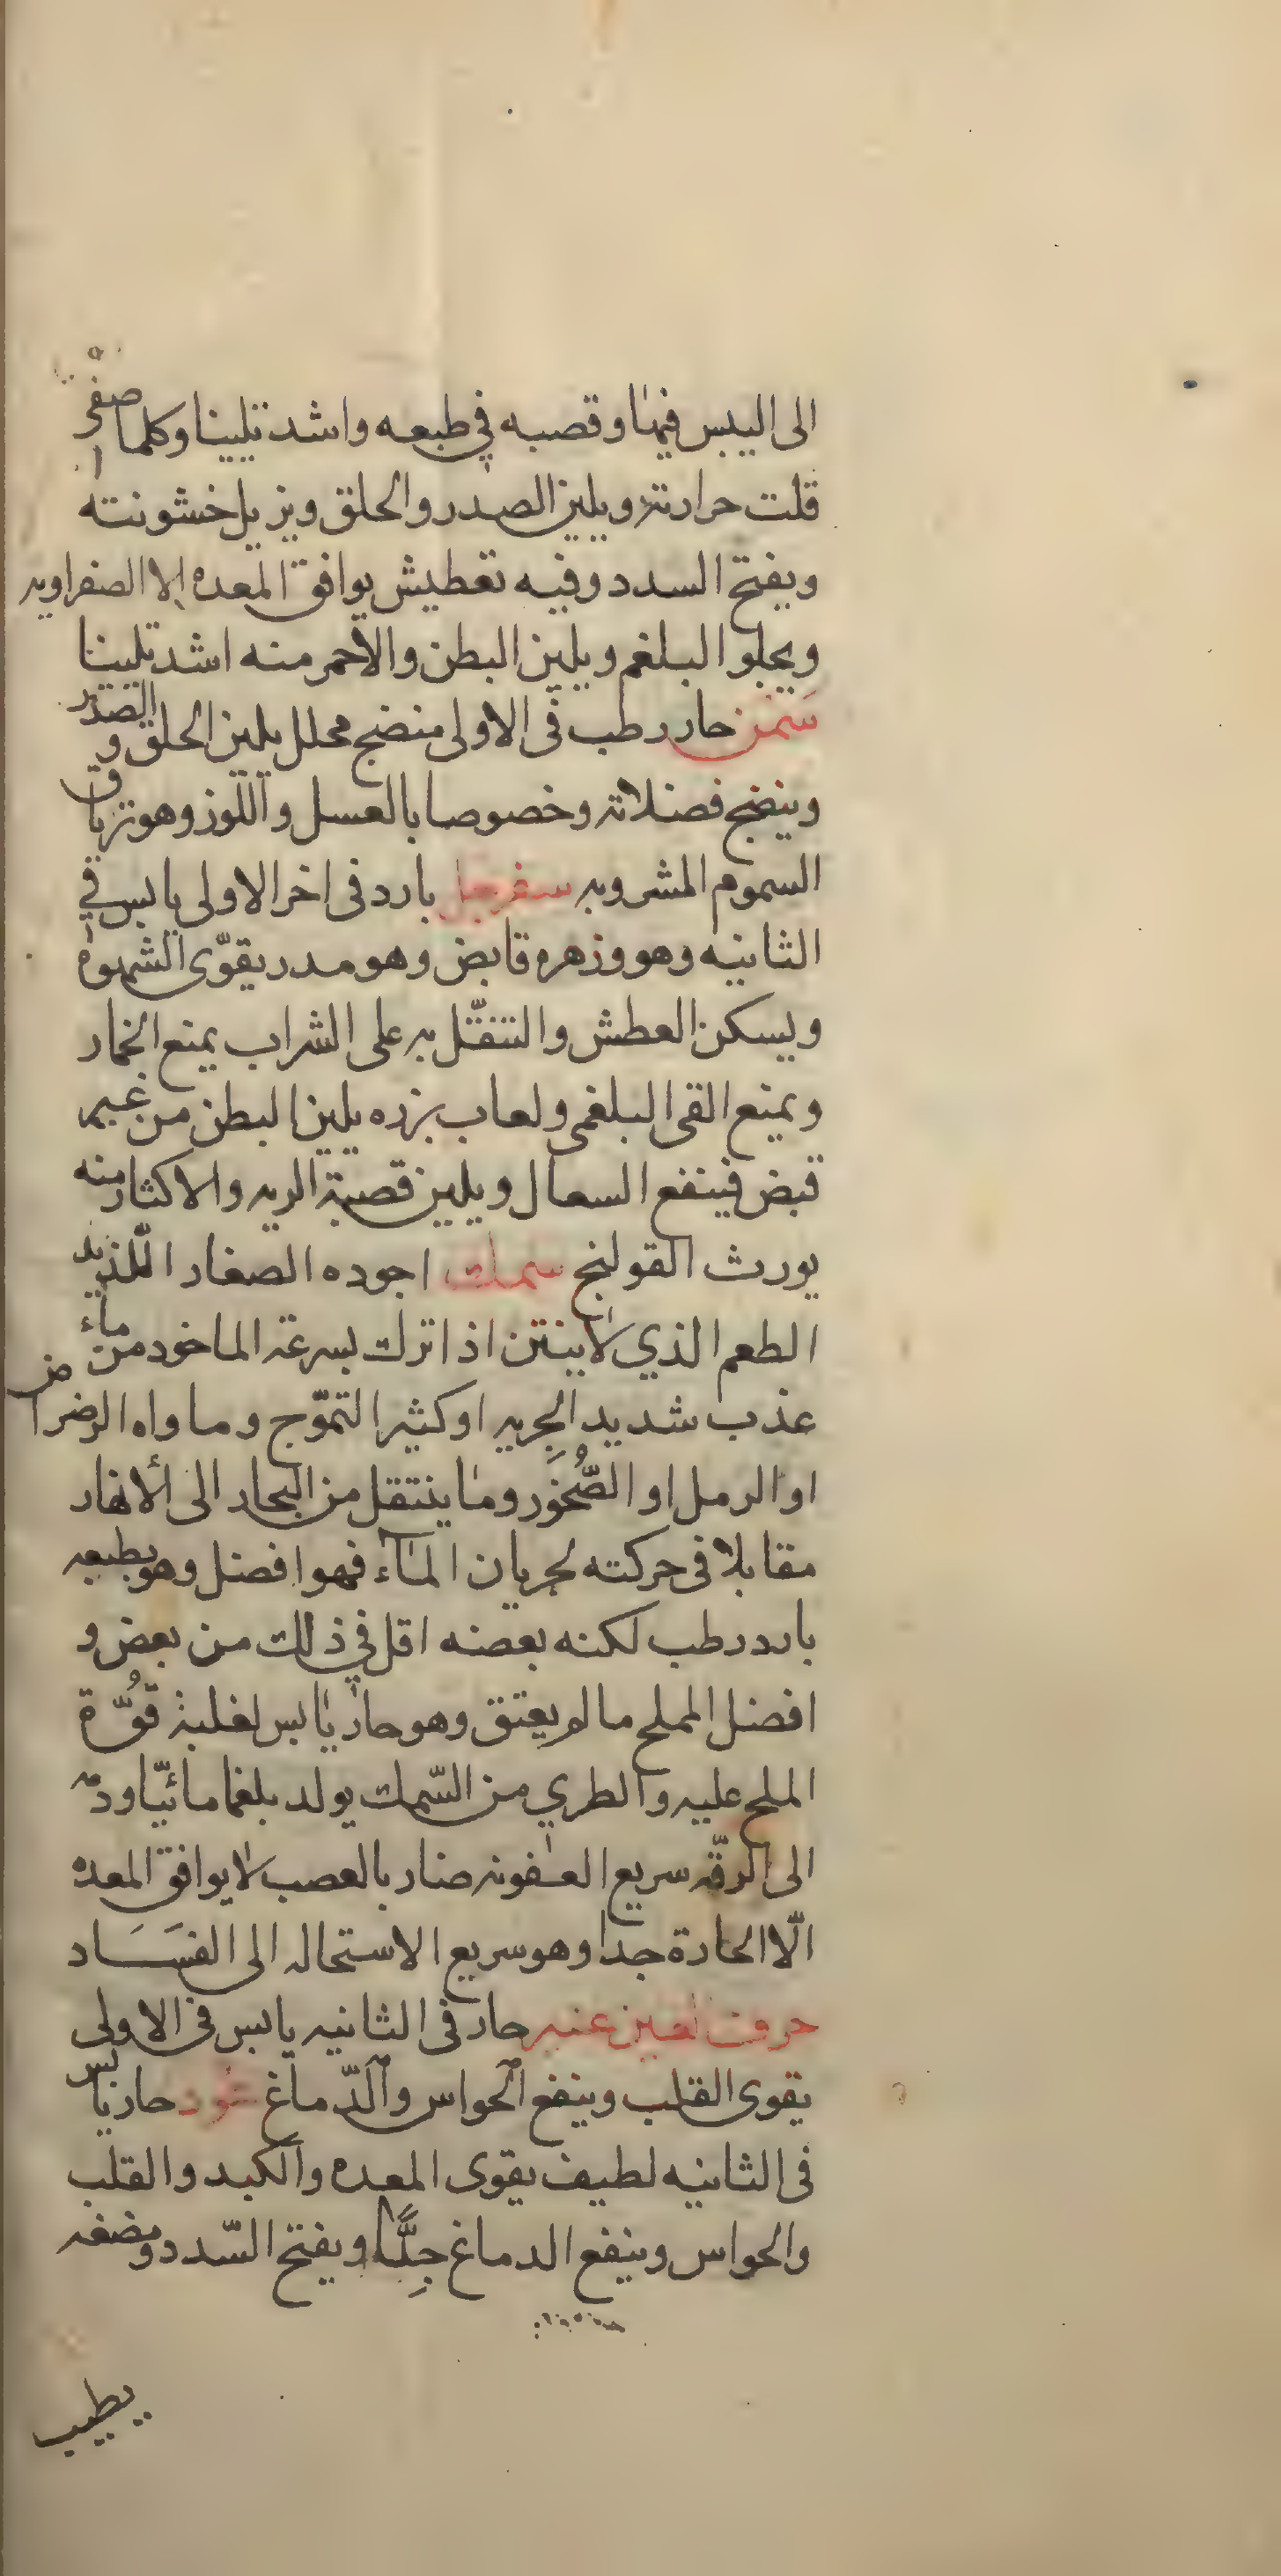 الى اليبس فيهما وقصبه في طبعه واشد تليينا وكلما صفى
قلت حرارته ويلين الصدر والحلق ويزيل خشونته
ويفتح السدد وفيه تعطيش يوافق المعده إلا الصفراويه
ويجلو البلغم ويلين البطن والأحمر منه اشد تليينا
سَمن حار رطب في الاولى منضج محلل يلين الحلق و الصدر
وينضج فضلاته وخصوصا بالعسل واللّوز وهو ترياق
السموم المشروبه سفرجل بارد في اخر الاولى يابس في
الثانيه وهو وزهره قابض وهو مدر يقوّى الشهوة
ويسكن العطش والتنقّل به على الشراب يمنع الخمار
ويمنع القى البلغمى ولعاب بزره يلين البطن من غير
قبض فينفع السعال ويلين قصبة الريه والاكثار منه
يورث القولنج سمك اجوده الصغار اللّذيذ
الطعم الذي لا ينتن اذا ترك بسرعة الماخود من ماء
عذب شديد الجِريه او كثير التموّج وماواه الرضراض
او الرمل او الصُّخَور وما ينتقل من البحار الى ألانهار
مقابلا في حركته لجريان الماء فهو افضل وهو بطبعه
بارد رطب لكنه بعضه اقل في ذلك من بعض و
افضل المملح ما لم يعتق وهو حار يابس لغلبة قوُّة
الملح عليه والطري من السّمك يولد بلغما مائيّا ودمه
الى الرقّه سريع العفونه ضار بالعصب لا يوافق المعده
الّا الحارة جدا وهو سريع الاستحاله الى الفسَسَاد
حرف العين عنبر حار في الثانيه يابس في الاولى
يقوى القلب وينفع الحواس والدّماغ عود حار يابس
في الثانيه لطيف يقوى المعده والكبد والقلب
والحواس وينفع الدماغ جِدًّا ويفتح السّدد ومضغه
يطيب